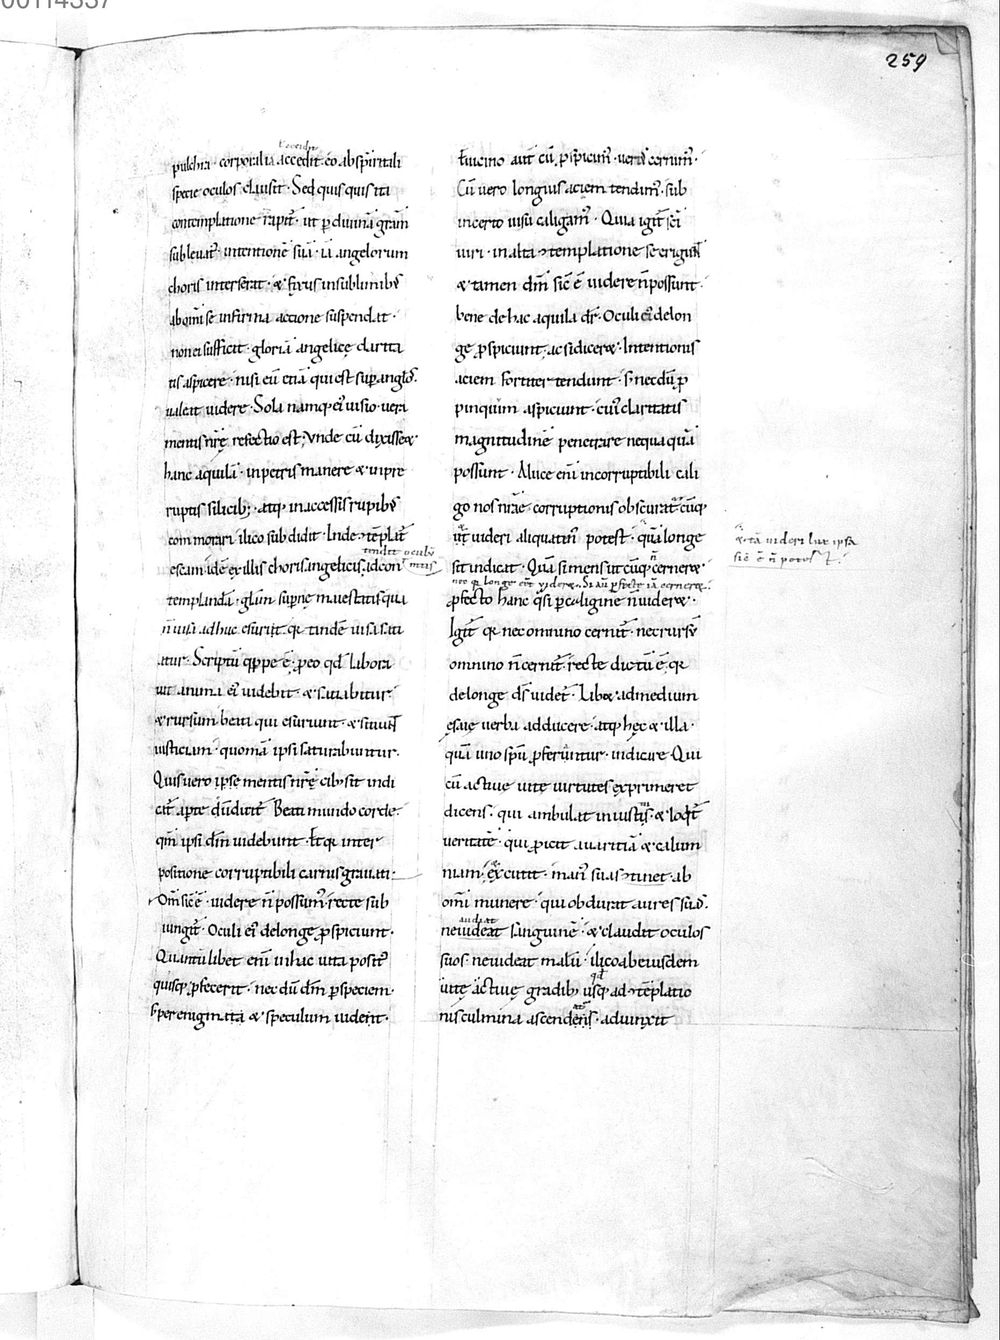 00114337
259
pulchra corporalia accedit eo ab spiritali
specie oculos clausit· Sed quisquis ita
contemplatione rapit̄· ut p̄ diuinā grām
subleuat̄· intentionē suā· iā angelorum
choris interserat· & fixus in sublimib;
ab om̄i se infirma actione suspendat·
non ei sufficit· gloriā angelicę clarita
tis aspicere· nisi eū etiā qui est sup̄ anglōs·
ualeat uidere· Sola namq; ei᷒ uisio· uera
mentis nr̄ę refectio est; Vnde cū dixiss&
hanc aquilā· in petris manere & in pre
ruptis silicib;· atq; in accessis rupib;
commorari· ilico subdidit· Inde cōtēplat̄
escam· idē ex illis choris angelicis· id con
tendit oculū
mtis
templandā· glam supn̄ę maiestatis· qua
n̄ uisa adhuc esurit̄· q̄ tandē uisa sati
atur· Scriptū q̄ppe ē· p̄ eo qd̄ labora
uit anima ei᷒ uidebit· & satiabitur·
& rursum· beati qui esuriunt· & sitiunt
iusticiam· quoniā ipsi saturabuntur·
Quis uero ipse mentis nr̄ę cib; sit indi
cat̄ apte dū dicit̄· Beati mundo corde·
qm̄ ipsi dm̄ uidebunt· Et q̄ inter
positione corruptibili carnis grauati·
Dm̄ sic ē· uidere n̄ possum᷒· recte sub
iungit̄· Oculi ei᷒ de longe p̄spiciunt·
Quantū libet eni in hac uita posit᷒
quisq; p̄fecerit· nec dū dm̄ p̄ speciem·
s; per enigmata & speculum uident·
E uicino aut̄ cū p̄spicim᷒· ueri᷒ cernim᷒·
Cū uero longius aciem tendim᷒· sub
incerto uisu caligam᷒· Quia igit̄ sc̄i
uiri· in alta cōtemplatione se erigunt
& tamen dm̄ sic̄ ē uidere n̄ possunt·
bene de hac aquila dr̄· Oculi ei᷒ de lon
ge p̄spiciunt· ac si dicer&· Intentionis
aciem fortiter tendunt· s; necdū p̄
pinquum aspiciunt· cui᷒ claritatis
magnitudinē penetrare nequaquā
possunt· A luce eni incorruptibili cali
go nos nr̄ae corruptionis obscurat· cūq;
ut̄ uideri aliquatin᷒ potest· quā longe
& tā uideri lux ipsa
sic̄ ē n̄ potest
sit indicat· Quā si mens utcūq; cerner&
nec q̄ longe eēt uider&· Si aū p̄fecte iā cerner&·
p̄fecto hanc q̄si p̄ caligine n̄ uider&·
Igit̄ q̄ nec omnino cernit̄· nec rursū
omnino n̄ cernit̄· recte dictū ē· q̄
de longe ds̄ uidet̄· Lib& ad medium
esaię uerba adducere· atq; hęc & illa·
quā uno sp̄u p̄feruntur· indicare· Qui
cū actiuę uitę uirtutes exprimeret
dicens· qui ambulat in iustis· & loqt̄
ueritatē· qui p̄icit auaritiā & calum
niam· excutit· man᷒ suas cōtinet· ab
om̄i munere· qui obdurat aures suas·
audiat
ne uideat sanguinē· & claudit oculos
suos· ne uideat malū· ilico ab eiusdem
uitę actiuę gradib; usq; ad cōtēplatio
nis culmina ascendens· adiunxit